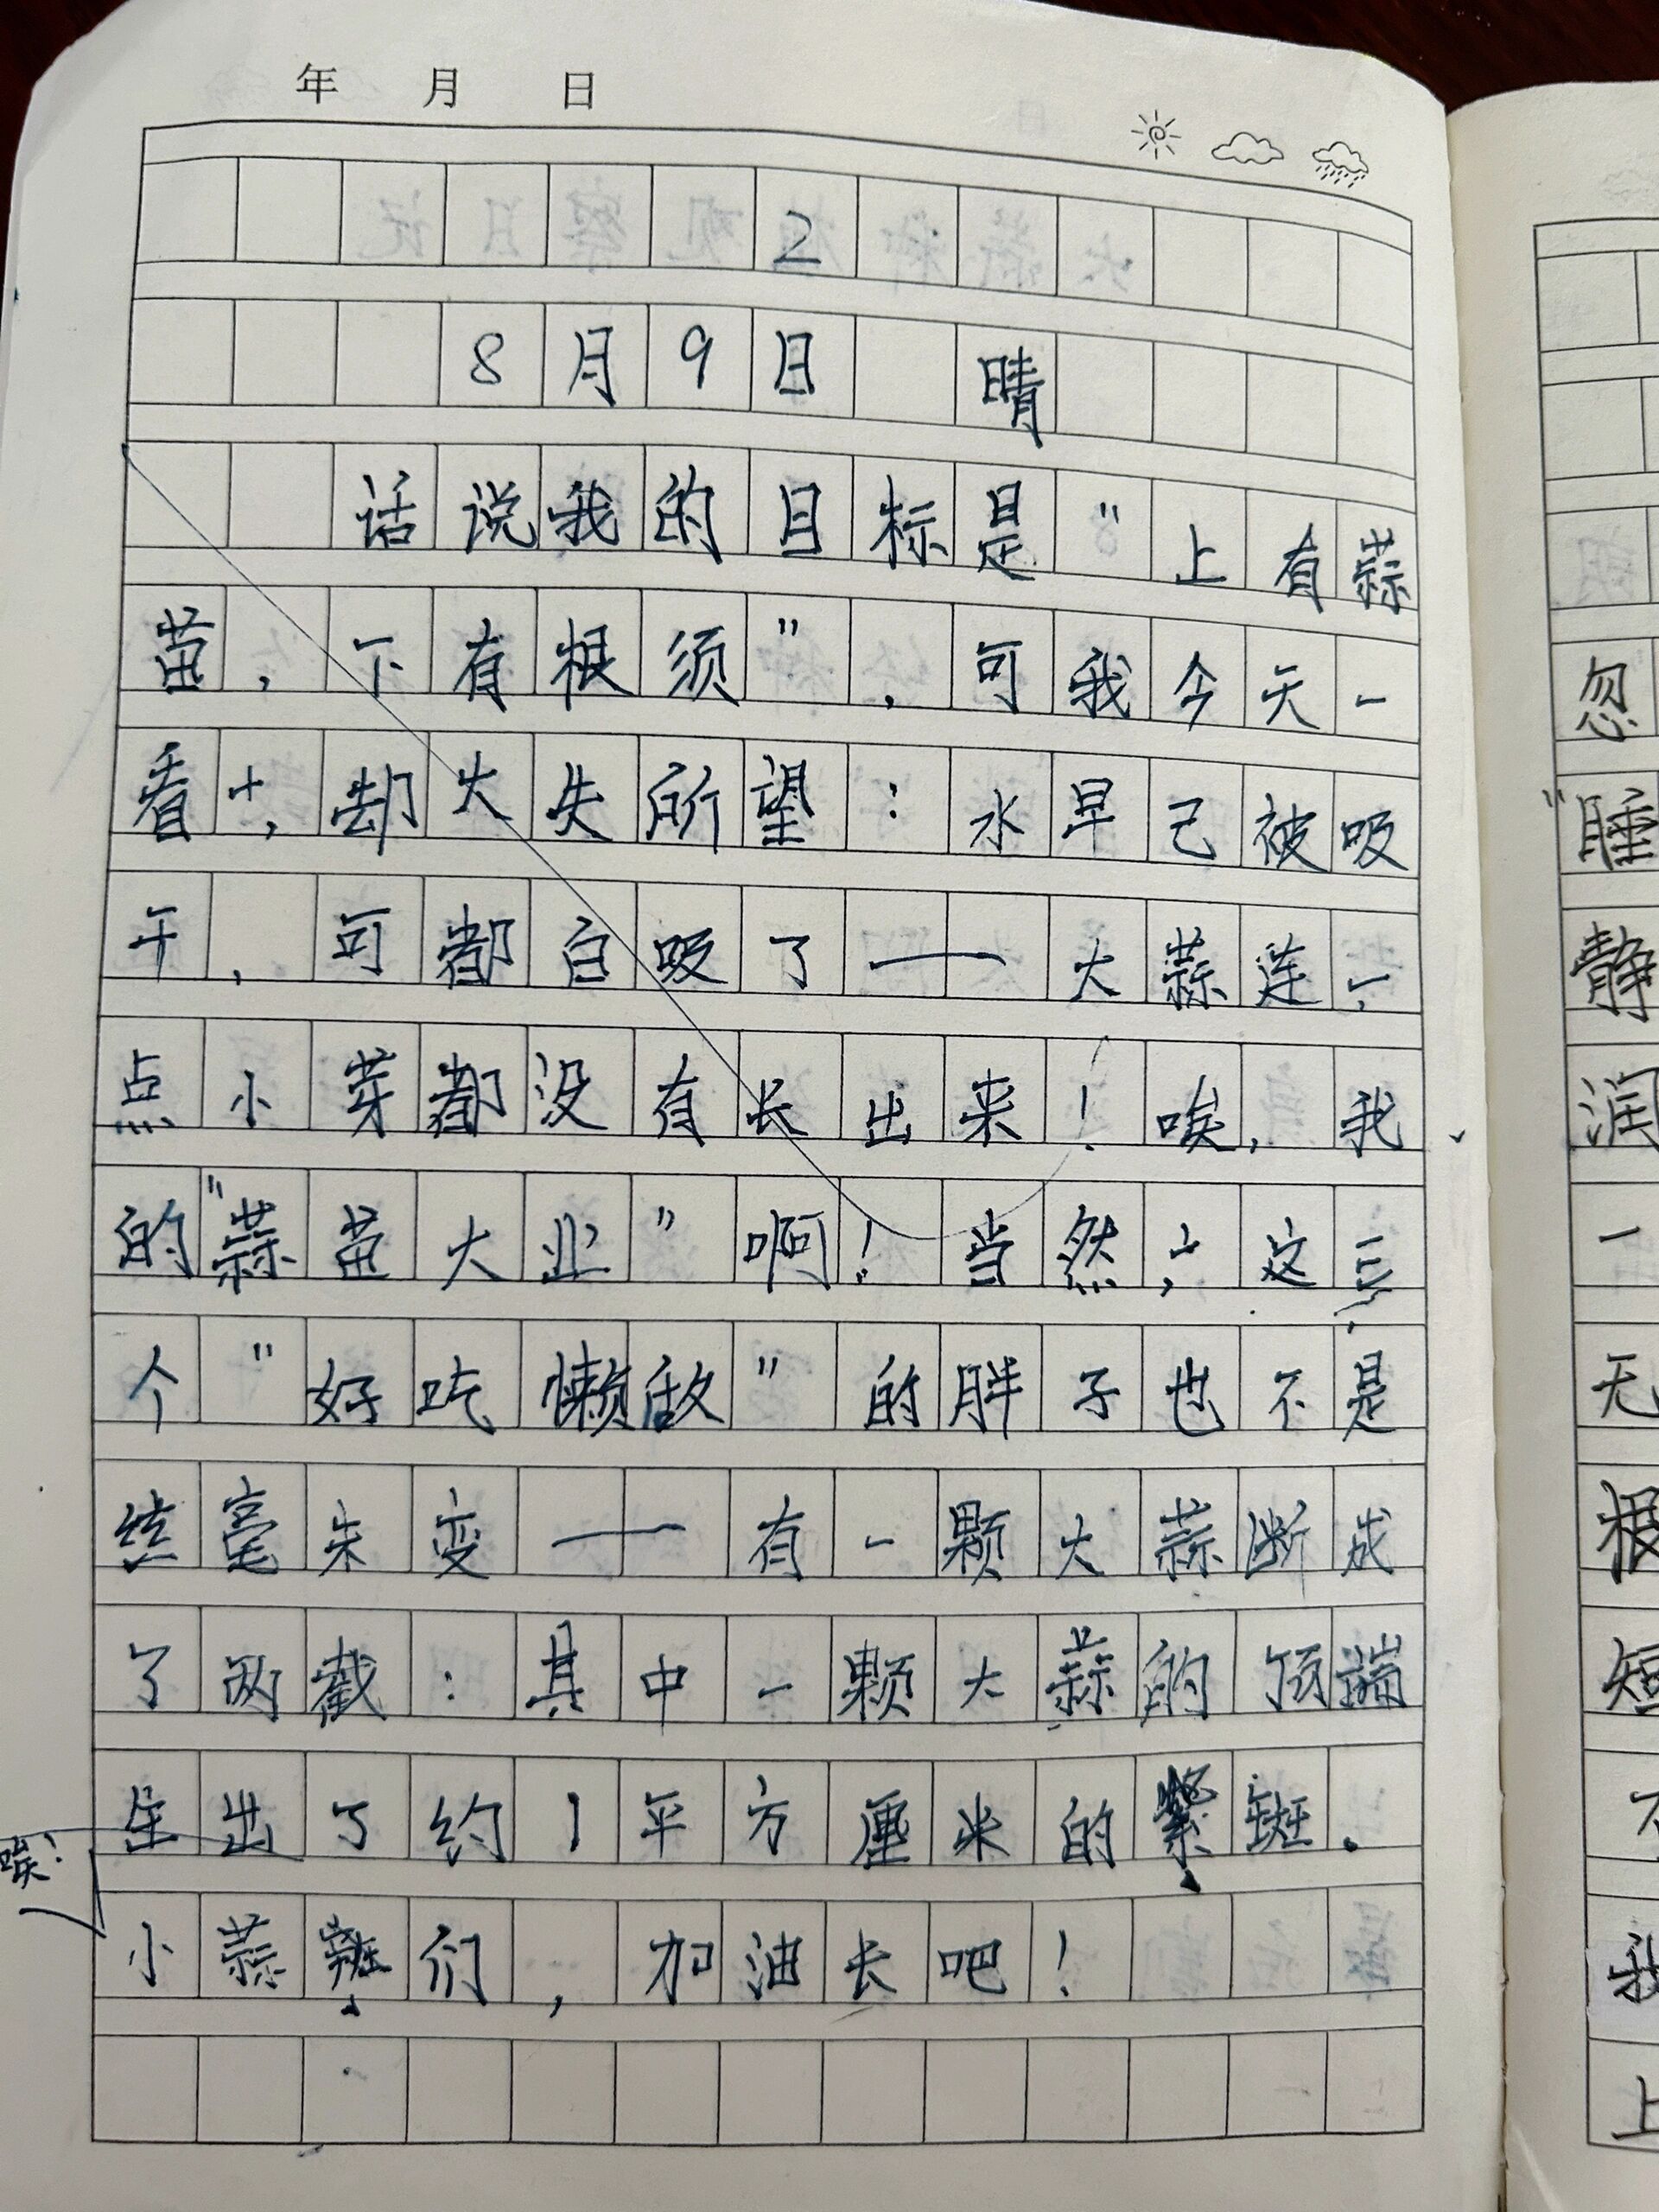 年 月 日
2
8月9日 晴
话说我的目标是"上有蒜
苗,下有根须",可我今天一
看,却大失所望:水早已被吸
干,可都白吸了——大蒜连一
点小芽都没有长出来!唉,我
的"蒜苗大业"啊!当然,这三
个"好吃懒做"的胖子也不是
丝毫未变——有一颗大蒜断成
了两截:其中一颗大蒜的顶端
生出了约1平方厘米的紫斑。
唉!
小蒜瓣们,加油长吧!
忽
"睡
静
润
一
无
根
短
不
我
上